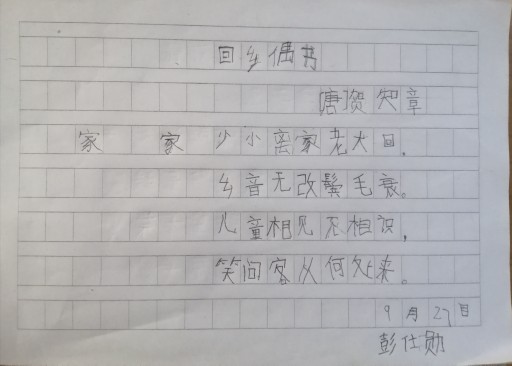 回乡偶书
唐贺知章
家 家 少小离家老大回.
乡音无改鬓毛衰。
儿童相见不相识.
笑问客从何处来。
9月27日
彭仕勋